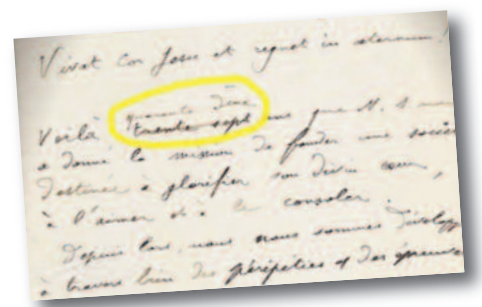 Vivat Cor Jesu et regnet in æternum!
quarante deux
Voilà trente sept ans que N. S. nous
a donné la mission de fonder une société
destinée à glorifier son divin cœur,
à l'aimer et à le consoler.
Depuis lors, nous nous sommes développ
à travers bien des péripéties et des épreuves